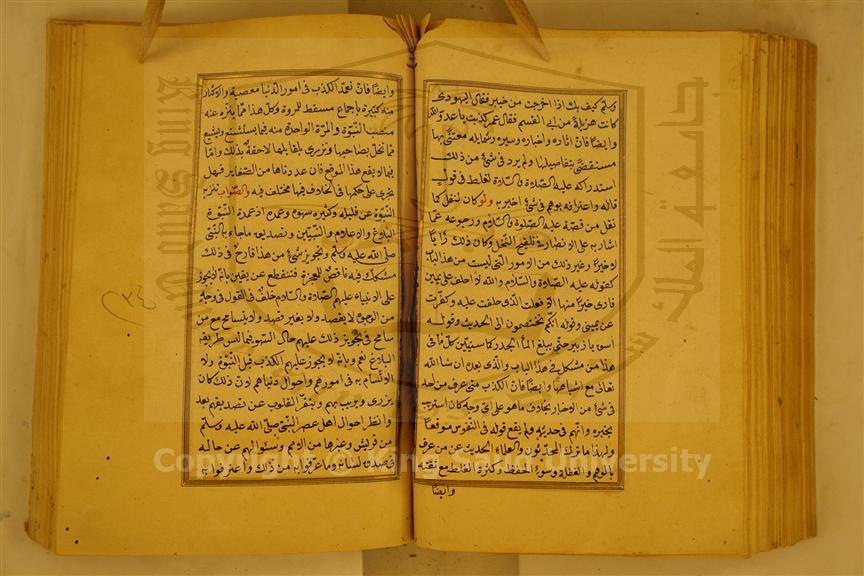 وسلم كيف بك اذا اخرجت من خيبر فقال اليهودى
كانت هزيلة من ابى القسم فقال عمر كذبت يا عدو الله
وايضا فان اثاره واخباره وسيره وشمايله معتنى بها
مستقصى تفاصيلها ولم يرد فى شئ من ذلك
استدراكه عليه الصلاة والسلام لغلط فى قول
قاله واعترافه بوهم فى شئ اخبر به ولو كان لنقل كما
نقل من قصته عليه الصلوة والسلام ورجوعه عما
اشار به على الانصار فى تلقيح النخل وكان ذلك رأيا
لا خبرا وغير ذلك من الامور التى ليست من هذا الباب
كقوله عليه الصلاة والسلام والله لا احلف على يمين
فارى خيرا منها الا فعلت الذى حلفت عليه وكفرت
عن يمينى وقوله انكم تختصمون الى الحديث وقوله
اسق يا زبير حتى يبلغ الماء الجدر كما سنبين كل ما فى
هذا من مشكل فى هذا الباب والذى بعده ان شا الله
تعالى مع اشباههما وايضا فان الكذب متى عرف من احد
فى شئ من الاخبار بخلاف ما هو على اى وجه كان استريب
بخبره واتهم فى حديثه ولم يقع قوله فى النفوس موقعا
ولهذا ما ترك المحدثون والعلماء الحديث عن من عرف
بالوهم والغفلة وسوء الحفظ وكثرة الغلط مع ثقته
وايضا
وايضا فان تعمد الكذب فى امور الدنيا معصية والاكثار
منه كبيرة باجماع مسقط للمروة وكل هذا مما ينزه عنه
منصب النبوة والمرة الواحدة منه فيما يستشنع ويشيع
مما تخل بصاحبها وتزرى بقايلها لاحقة بذلك واما
فيما لا يقع هذا الموقع فان عددناها من الصغاير فهل
تجرى على حكمها فى الخلاف فيها مختلف فيه والصواب تنزيه
النبوة عن قليله وكثيره سهوه وعمده اذ عمدة النبوة
البلاغ والاعلام والتبيين وتصديق ما جاء به النبى
صلى الله عليه وسلم وتجويز شئ من هذا قادح فى ذلك
مشكك فيه ناقض للمعجزة فلنقطع عن يقين بانه لا يجوز
على الانبياء عليهم الصلاة والسلام خلف فى القول فى وجه
من الوجوه لا بقصد ولا بغير قصد ولا يتسامح مع من
سامح فى تجويز ذلك عليهم حال السهو فيما ليس طريقه
البلاغ نعم وبانه لا يجوز عليهم الكذب قبل النبوة ولا
الاتسام به فى امورهم واحوال دنياهم لان ذلك كان
يزرى ويريب بهم وينفر القلوب عن تصديقهم بعد
وانظر احوال اهل عصر النبى صلى الله عليه وسلم
من قريش وغيرها من الامم وسئوالهم عن حاله
فى صدق لسانه وما عرفوا به من ذلك واعترفوا به
Copyright © King Saud University
King Saud University
جامعة الملك سعود